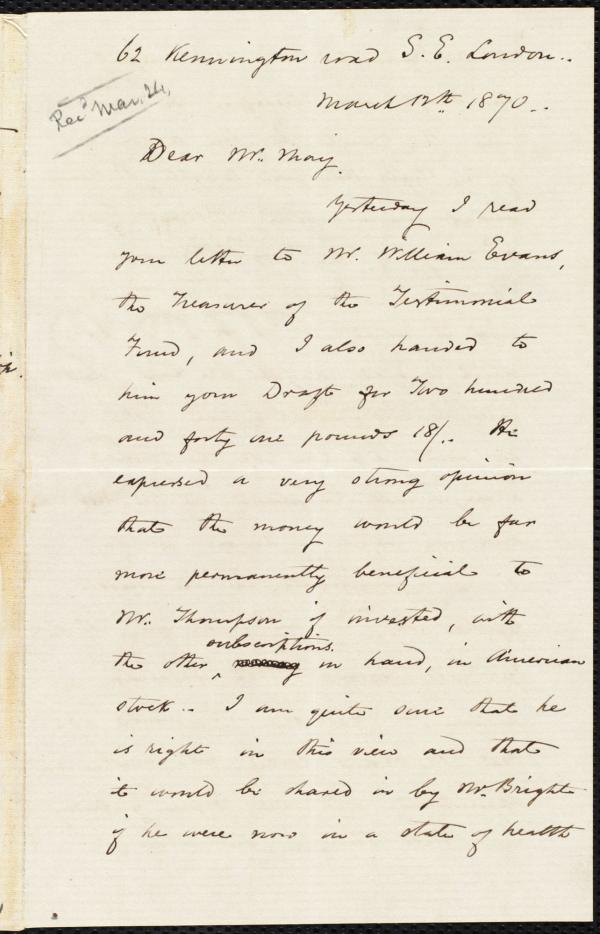 62 Kennington road S. E. London..
Recd Mar. 24,
March 12th 1870..
Dear Mr. May.
Yesterday I read
your letter to Mr. William Evans,
the Treasurer of the Testimonial
Fund, and I also handed to
him your Draft for Two hundred
and forty one pounds 18/. He
expressed a very strong opinion
that the money would be far
more permanently beneficial to
Mr. Thompson if invested, with
subscriptions.
the other in hand, in American
stock.. I am quite sure that he
is right in this view and that
it would be shared in by Mr. Bright
if he were now in a state of health